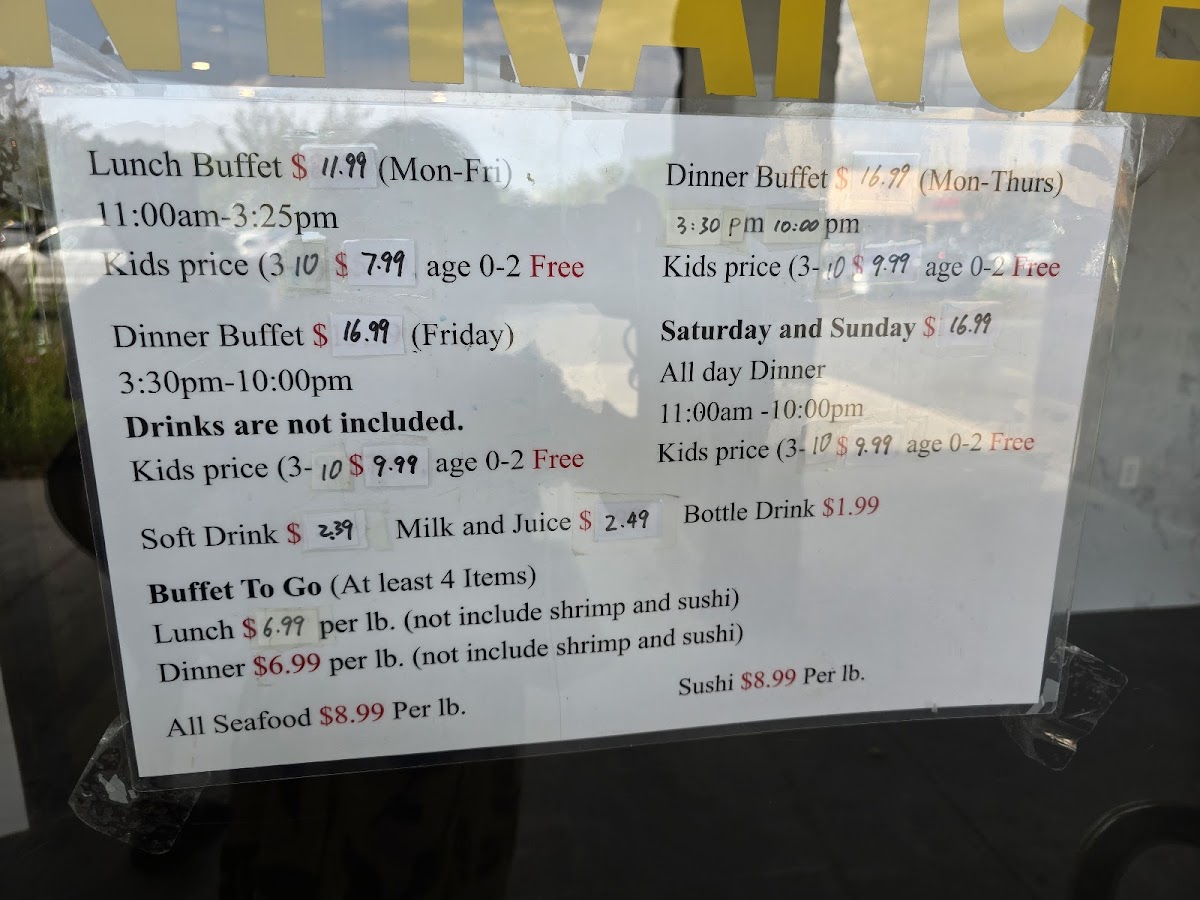 NTRANCE
Lunch Buffet $ 11.99 (Mon-Fri)
11:00am-3:25pm
Kids price (3 10 $ 7.99 age 0-2 Free
Dinner Buffet $ 16.99 (Mon-Thurs)
3:30 pm 10:00 pm
Kids price (3- 10 $ 9.99 age 0-2 Free
Dinner Buffet $ 16.99 (Friday)
3:30pm-10:00pm
Drinks are not included.
Kids price (3- 10 $ 9.99 age 0-2 Free
Saturday and Sunday $ 16.99
All day Dinner
11:00am -10:00pm
Kids price (3- 10 $ 9.99 age 0-2 Free
Soft Drink $ 2.39 Milk and Juice $ 2.49 Bottle Drink $1.99
Buffet To Go (At least 4 Items)
Lunch $ 6.99 per lb. (not include shrimp and sushi)
Dinner $6.99 per lb. (not include shrimp and sushi)
All Seafood $8.99 Per lb. Sushi $8.99 Per lb.